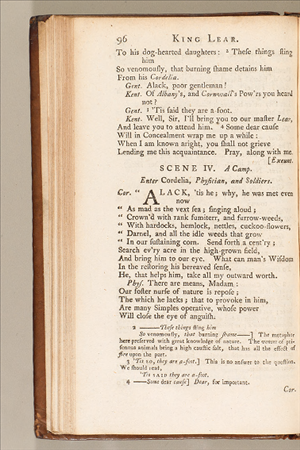 96 KING LEAR.
To his dog-hearted daughters: ² These things sting
him
So venomously, that burning shame detains him
From his Cordelia.
Gent. Alack, poor gentleman!
Kent. Of Albany's, and Cornwall's Pow'rs you heard
not?
Gent. ³ 'Tis said they are a-foot.
Kent. Well, Sir, I'll bring you to our master Lear,
And leave you to attend him. ⁴ Some dear cause
Will in Concealment wrap me up a while:
When I am known aright, you shall not grieve
Lending me this acquaintance. Pray, along with me.
[Exeunt.
SCENE IV. A Camp.
Enter Cordelia, Physician, and Soldiers.
Cor. " ALACK, 'tis he; why, he was met even
now
" As mad as the vext sea; singing aloud;
" Crown'd with rank fumiterr, and furrow-weeds,
" With hardocks, hemlock, nettles, cuckoo-flowers,
" Darnel, and all the idle weeds that grow
" In our sustaining corn. Send forth a cent'ry;
Search ev'ry acre in the high-grown field,
And bring him to our eye. What can man's Wisdom
In the restoring his bereaved sense,
He, that helps him, take all my outward worth.
Phys. There are means, Madam:
Our foster nurse of nature is repose;
The which he lacks; that to provoke in him,
Are many Simples operative, whose power
Will close the eye of anguish.
2 ——These things sting him
So venomously, that burning shame——] The metaphor
here preserved with great knowledge of nature. The venom of poi-
sonous animals being a high caustic salt, that has all the effect of
fire upon the part.
3 'Tis so, they are a-foot.] This is no answer to the question.
We should read,
'Tis SAID they are a-foot.
4 —Some dear cause] Dear, for important.
Cor.